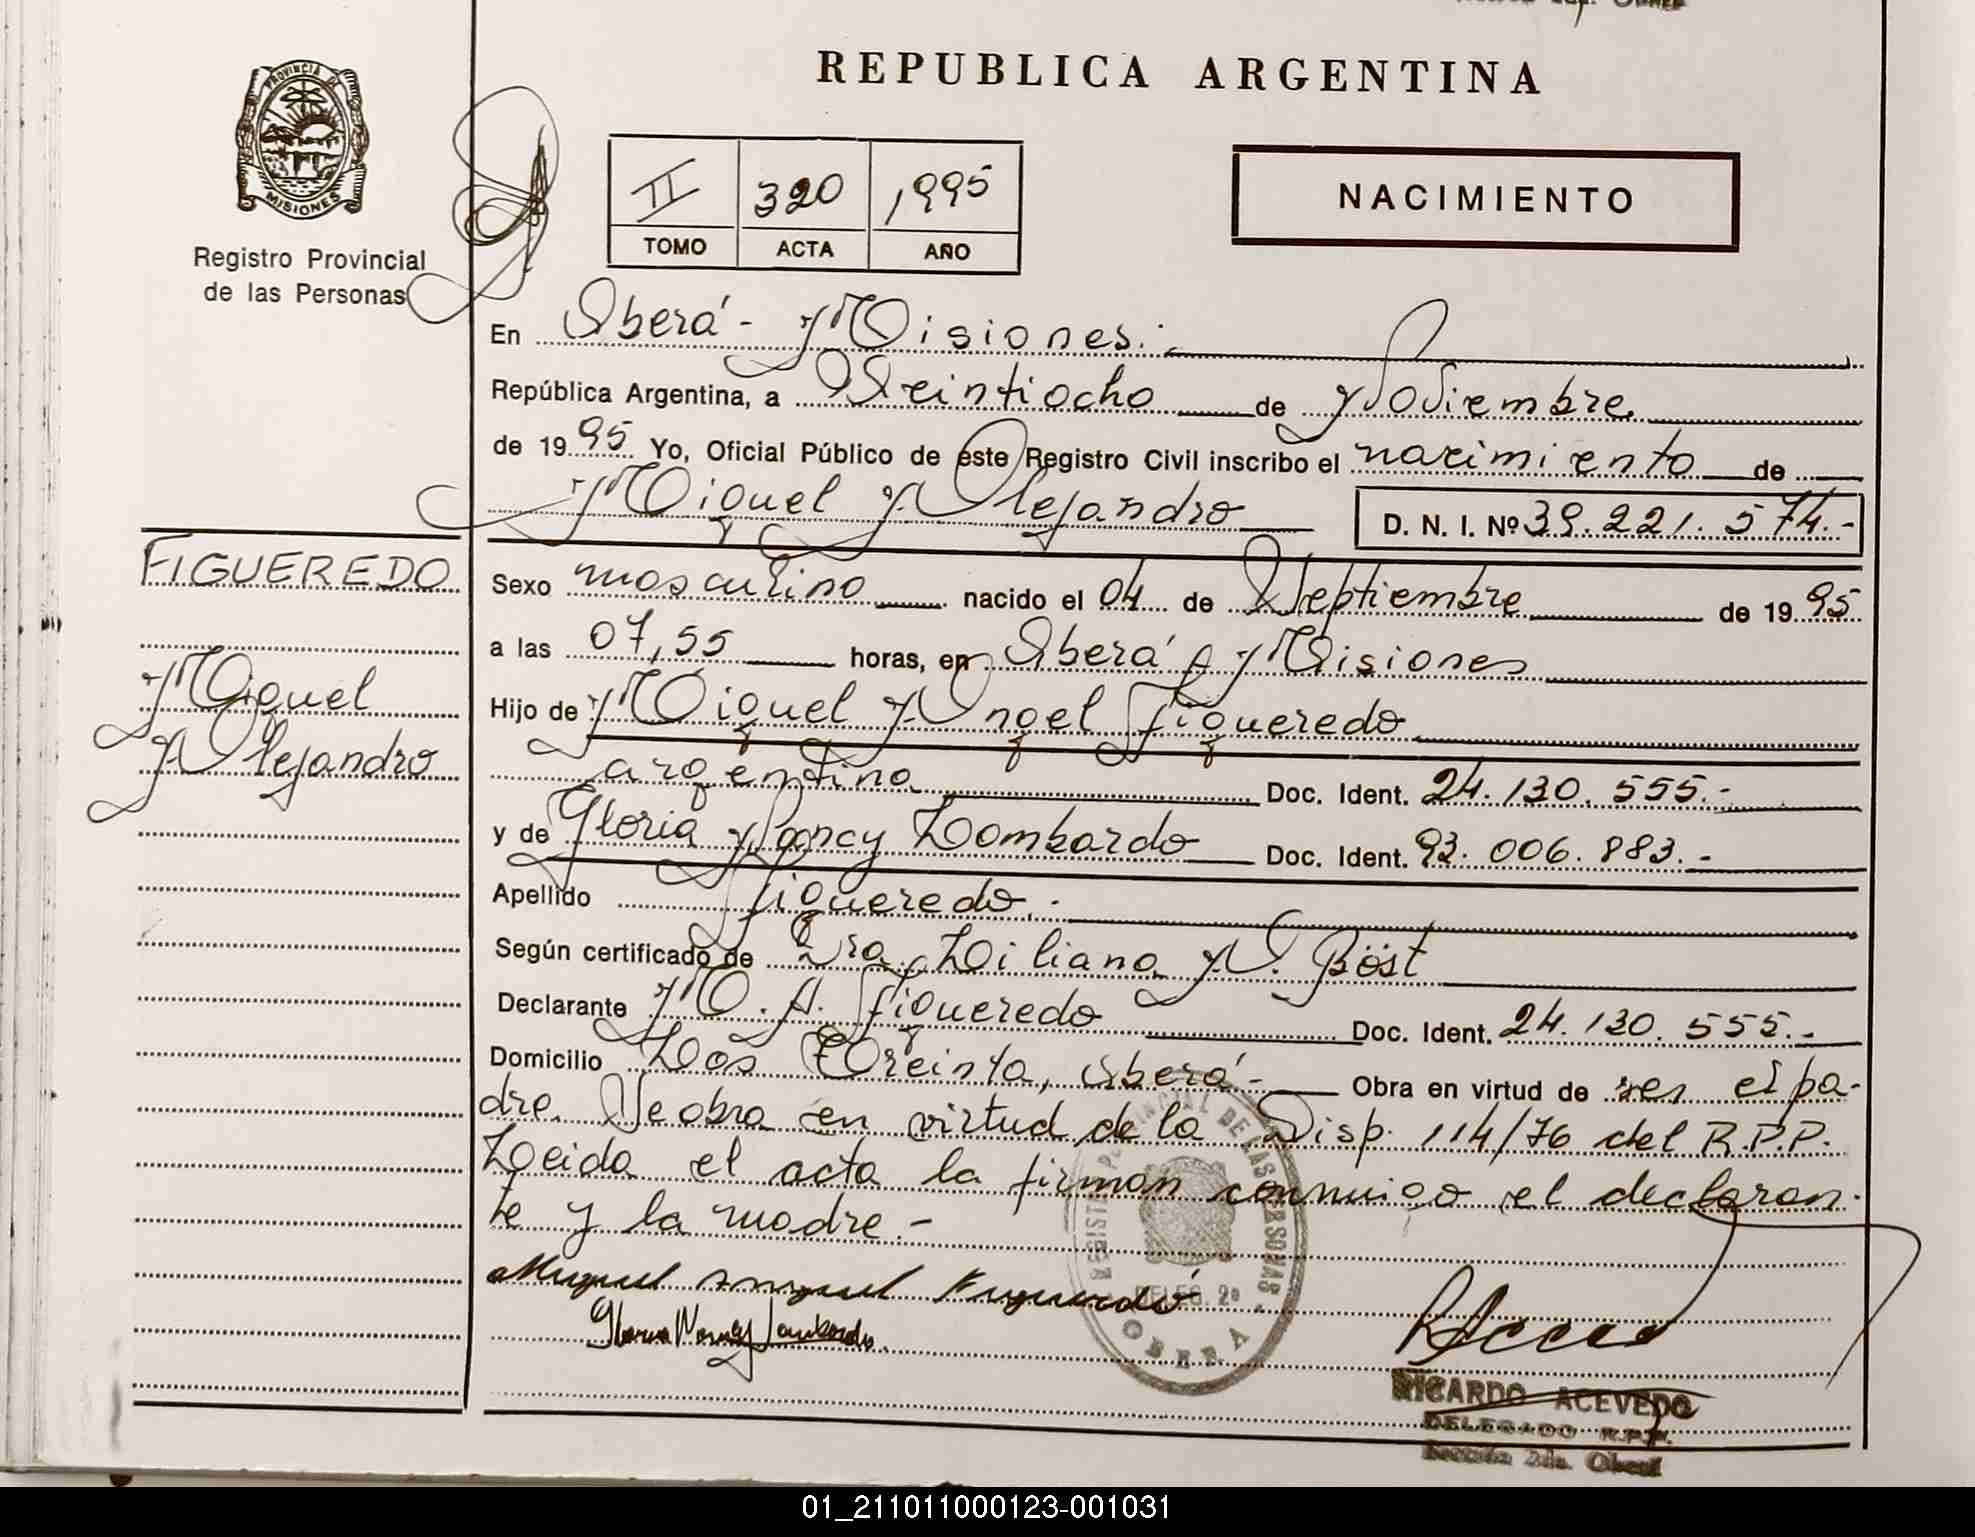 REPUBLICA ARGENTINA
PROVINCIA DE MISIONES
Registro Provincial
de las Personas
II 320 1995
TOMO ACTA AÑO
NACIMIENTO
En Oberá - Misiones.
República Argentina, a Veintiocho de Noviembre
de 1995 Yo, Oficial Público de este Registro Civil inscribo el nacimiento de
Miguel Alejandro D. N. I. Nº 39.221.574.-
FIGUEREDO
Miguel
Alejandro
Sexo masculino nacido el 04 de Septiembre de 1995
a las 07,55 horas, en Oberá, Misiones
Hijo de Miguel Angel Figueredo
argentino Doc. Ident. 24.130.555.-
y de Gloria Nancy Lombardo Doc. Ident. 93.006.883.-
Apellido Figueredo.-
Según certificado de Dra. Liliana N. Böst
Declarante M. A. Figueredo Doc. Ident. 24.130.555.-
Domicilio Los Treinta, Oberá- Obra en virtud de ser el pa-
dre. Se obra en virtud de la Disp. 114/76 del R.P.P.
Leida el acta la firman conmigo el declaran-
te y la madre.-
Miguel Angel Figueredo
Gloria Nancy Lombardo
REGISTRO PROVINCIAL DE LAS PERSONAS
DELEG. 2ª
OBERA
RICARDO ACEVEDO
DELEGADO R.P.P.
Sección 2da. Oberá
01_211011000123-001031